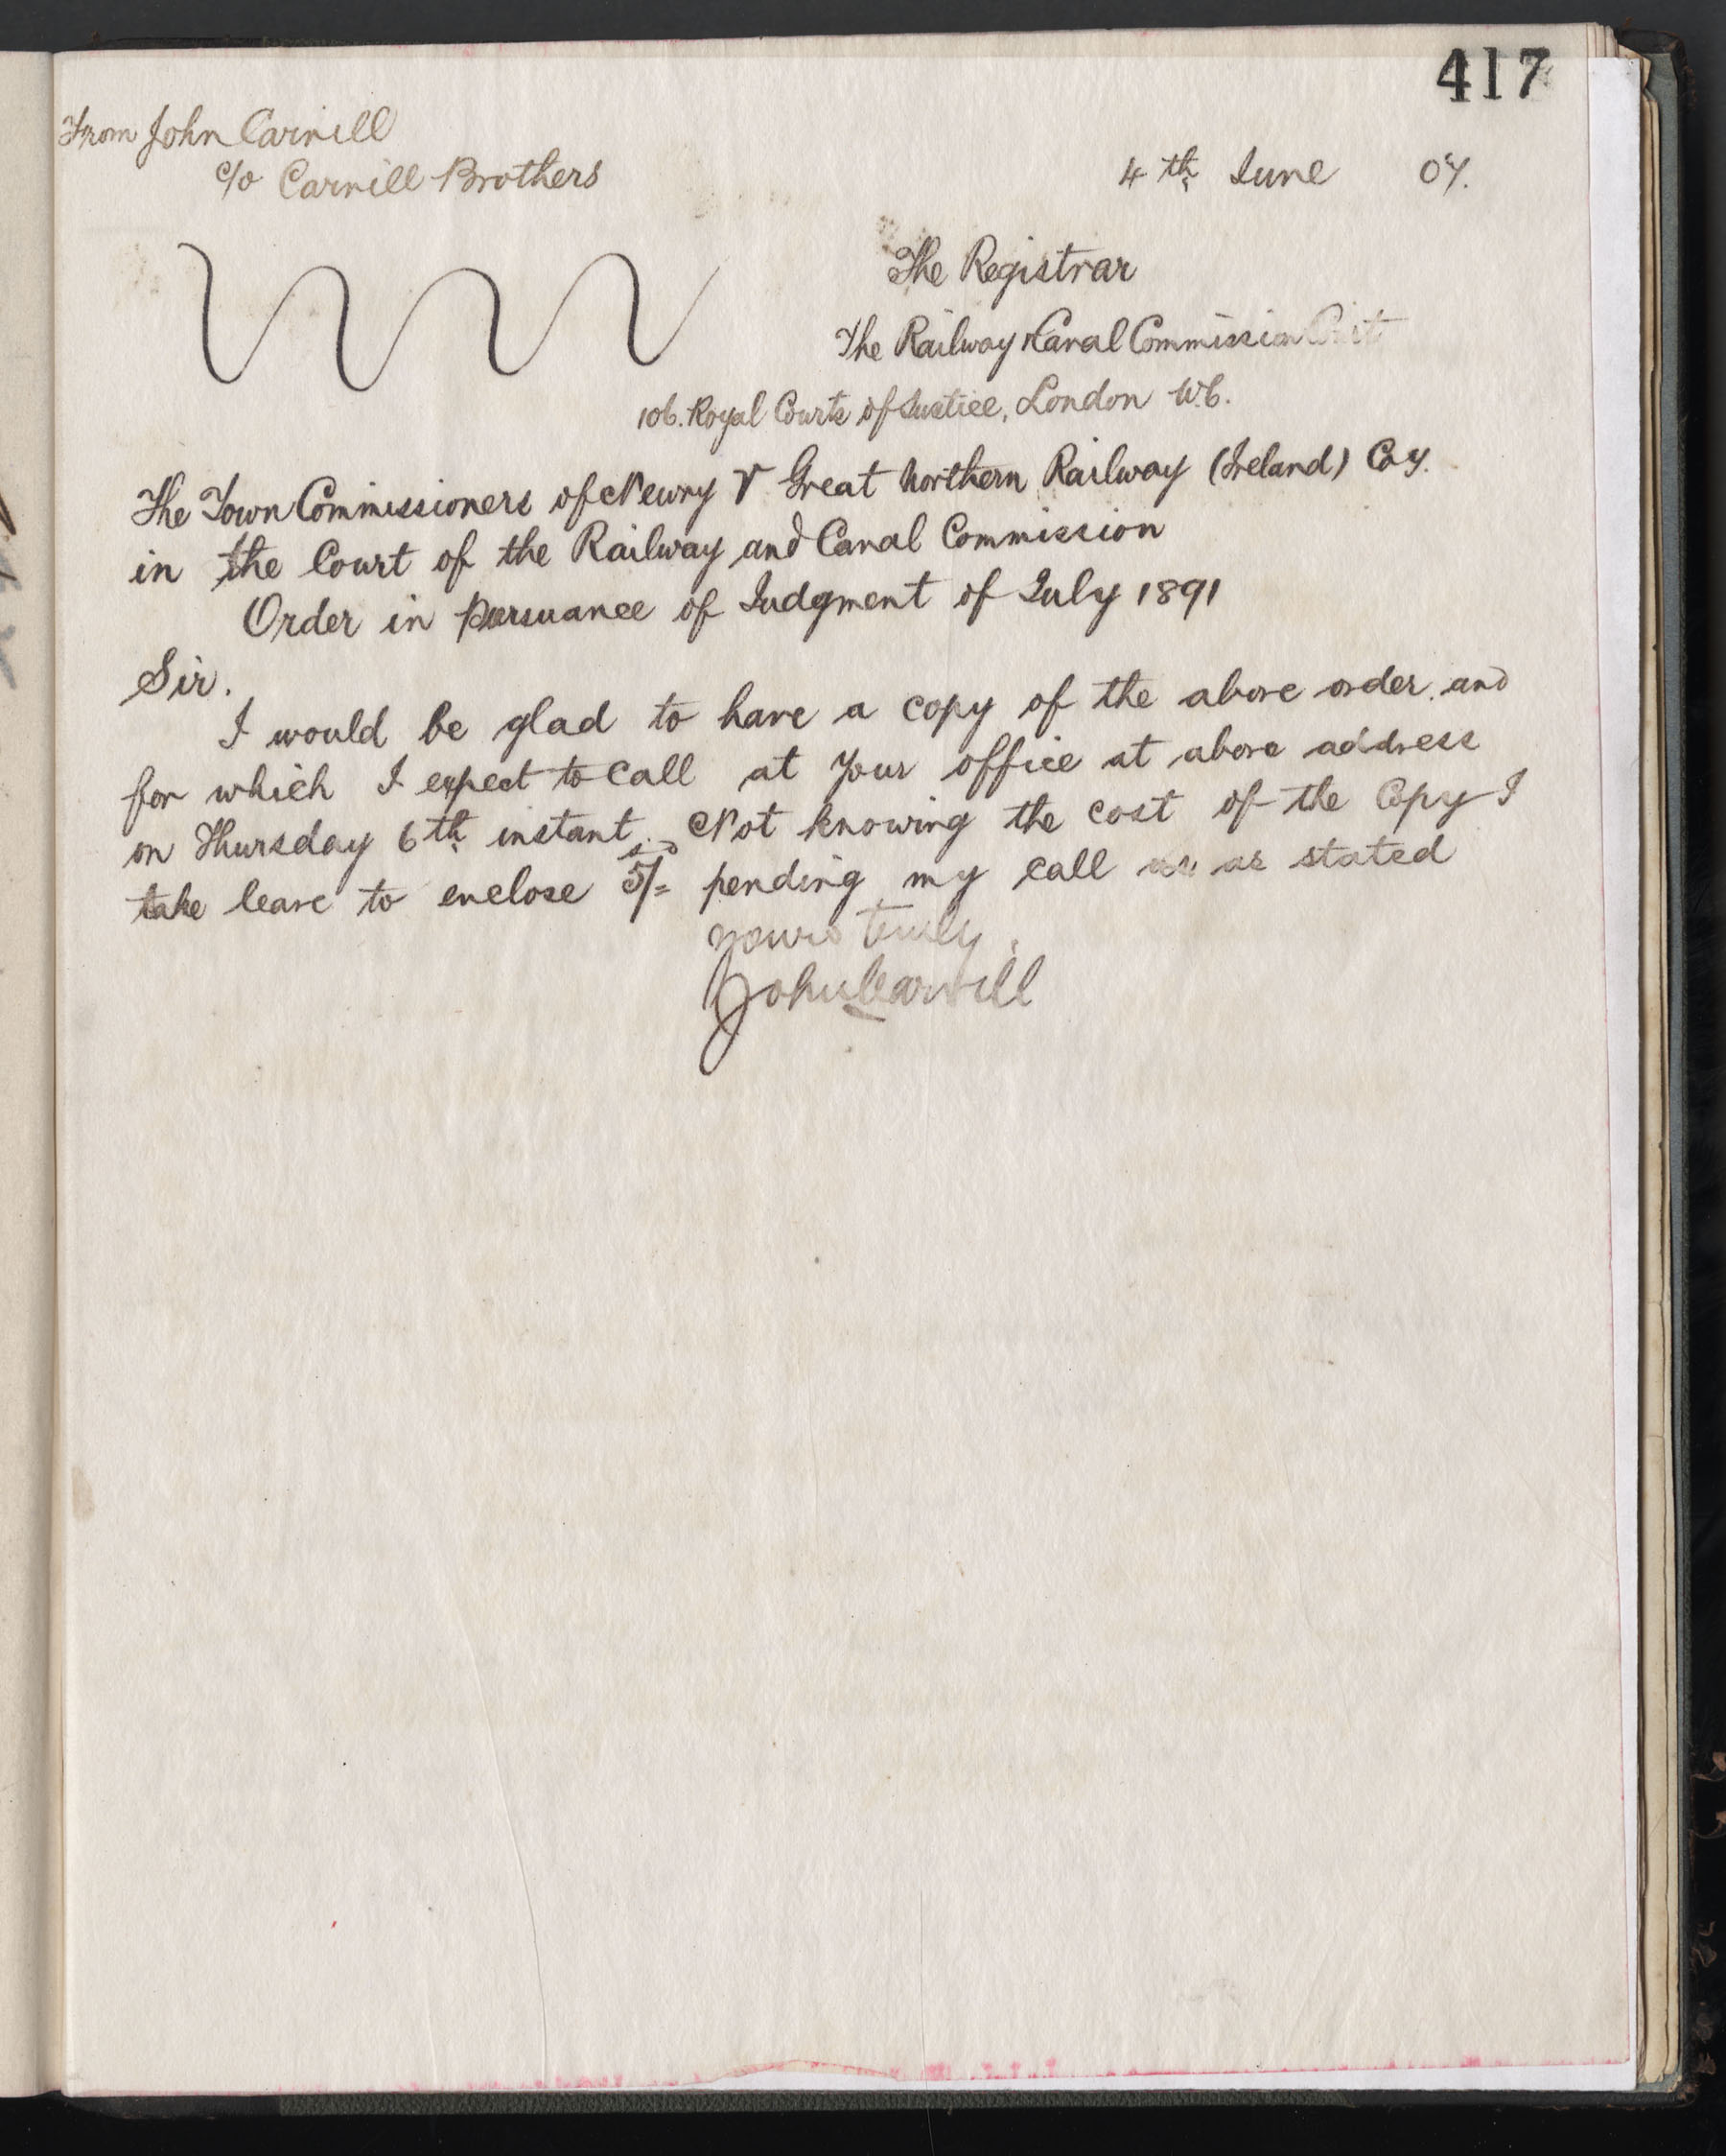 417
From John Carvill
c/o Carvill Brothers
4th June 07.
The Registrar
The Railway & Canal Commission Court
106. Royal Courts of Justice, London W.C.
The Town Commissioners of Newry v Great Northern Railway (Ireland) Coy.
in the Court of the Railway and Canal Commission
Order in pursuance of Judgment of July 1891
Sir.
I would be glad to have a copy of the above order and
for which I expect to call at your office at above address
on Thursday 6th instant. Not knowing the cost of the Copy I
take leave to enclose 5/= pending my call as stated
yours truly.
John Carvill